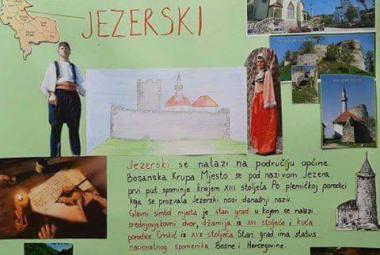 JEZERSKI
Jezerski se nalazi na području općine
Bosanska Krupa Mjesto se pod nazivom Jezera
prvi put spominje krajem XIII stoljeća Po plemićkoj porodici
koja se prozvala Jezerski nosi današnji naziv.
Glavni simbol mjesta je stari grad u kojem se nalazi
srednjovjekovni dvor, džamija iz XVII stoljeća i kuća
porodice Crnkić iz XIX stoljeća Stari grad ima status
nacionalnog spomenika Bosne i Hercegovine.